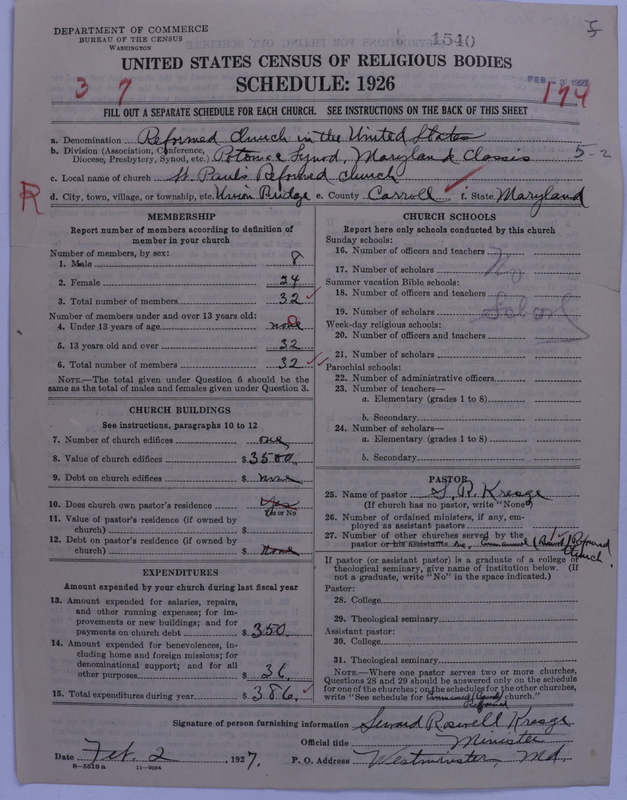 DEPARTMENT OF COMMERCE
BUREAU OF THE CENSUS
WASHINGTON
1540
UNITED STATES CENSUS OF RELIGIOUS BODIES
SCHEDULE: 1926
3 7
FEB - 3 1927
174
FILL OUT A SEPARATE SCHEDULE FOR EACH CHURCH. SEE INSTRUCTIONS ON THE BACK OF THIS SHEET
a. Denomination Reformed Church in the United States
b. Division (Association, Conference,
Diocese, Presbytery, Synod, etc.) Potomac Synod, Maryland Classis 5-2
c. Local name of church St. Paul's Reformed Church
R
d. City, town, village, or township, etc. Union Bridge e. County Carroll f. State Maryland
MEMBERSHIP
Report number of members according to definition of
member in your church
Number of members, by sex:
1. Male 8
2. Female 24
3. Total number of members 32
Number of members under and over 13 years old:
4. Under 13 years of age none 0
5. 13 years old and over 32
6. Total number of members 32
NOTE.—The total given under Question 6 should be the
same as the total of males and females given under Question 3.
CHURCH BUILDINGS
See instructions, paragraphs 10 to 12
7. Number of church edifices one
8. Value of church edifices $ 3500.
9. Debt on church edifices $ none
10. Does church own pastor's residence Yes
Yes or No
11. Value of pastor's residence (if owned by
church) $
12. Debt on pastor's residence (if owned by
church) $ None
EXPENDITURES
Amount expended by your church during last fiscal year
13. Amount expended for salaries, repairs,
and other running expenses; for im-
provements or new buildings; and for
payments on church debt $ 350.
14. Amount expended for benevolences, in-
cluding home and foreign missions; for
denominational support; and for all
other purposes $ 36.
15. Total expenditures during year $ 386.
CHURCH SCHOOLS
Report here only schools conducted by this church
Sunday schools:
16. Number of officers and teachers
No
17. Number of scholars
Summer vacation Bible schools:
18. Number of officers and teachers
19. Number of scholars
School
Week-day religious schools:
20. Number of officers and teachers
21. Number of scholars
Parochial schools:
22. Number of administrative officers
23. Number of teachers—
a. Elementary (grades 1 to 8)
b. Secondary
24. Number of scholars—
a. Elementary (grades 1 to 8)
b. Secondary
PASTOR
25. Name of pastor S. R. Kresge
(If church has no pastor, write "None")
26. Number of ordained ministers, if any, em-
ployed as assistant pastors
27. Number of other churches served by the
pastor or his assistants Reformed
Church.
If pastor (or assistant pastor) is a graduate of a college or
theological seminary, give name of institution below. (If
not a graduate, write "No" in the space indicated.)
Pastor:
28. College
29. Theological seminary
Assistant pastor:
30. College
31. Theological seminary
NOTE.—Where one pastor serves two or more churches,
Questions 28 and 29 should be answered only on the schedule
for one of the churches; on the schedules for the other churches,
write "See schedule for church."
Reformed
Signature of person furnishing information Seward Rosewell Kresge
Official title Minister
Date Feb. 2, 1927. P. O. Address Westminster, Md.
8-5518 a 11-9034